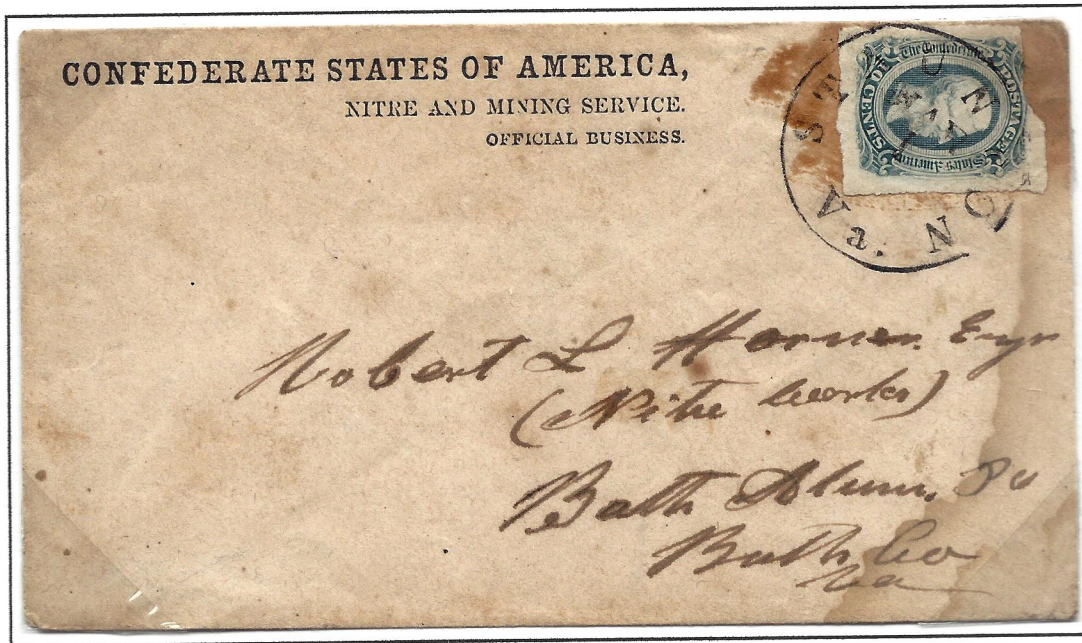 CONFEDERATE STATES OF AMERICA,
NITRE AND MINING SERVICE.
OFFICIAL BUSINESS.
STAUNTON Va.
The Confederate States America
POSTAGE
CENTS
Robert L Horner. Esqr
(Nitre Works)
Bath Alum, PO
Bath Co
Va